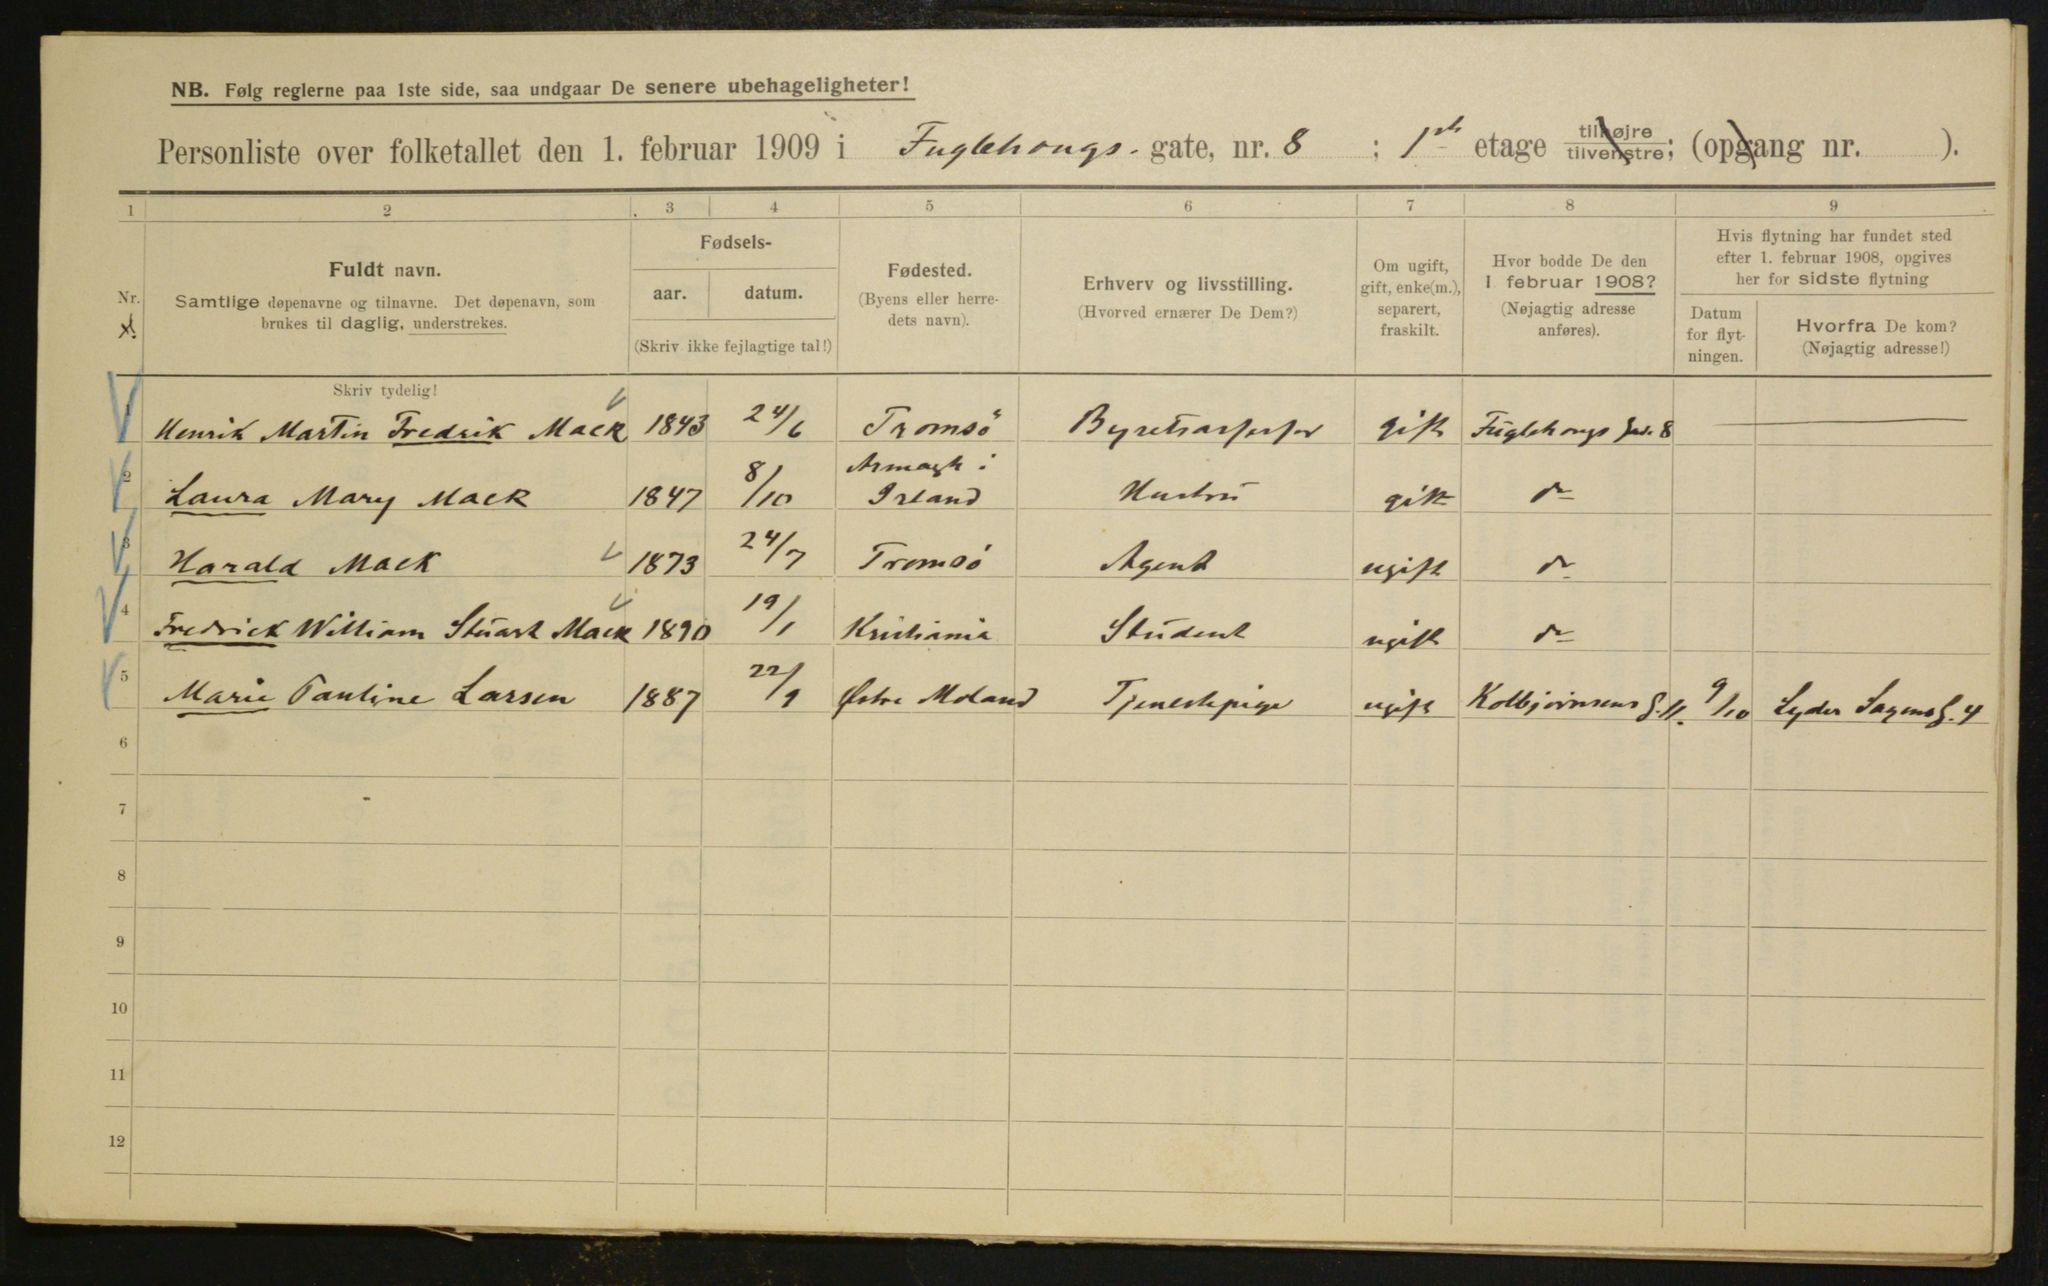 NB. Følg reglerne paa 1ste side, saa undgaar De senere ubehageligheter!
Personliste over folketallet den 1. februar 1909 i Fuglehaugs. gate, nr. 8 ; 1ste etage tilhøjre tilvenstre; (opgang nr. ).
1 2 3 4 5 6 7 8 9
Nr.
Fuldt navn.
Samtlige døpenavne og tilnavne. Det døpenavn, som
brukes til daglig, understrekes.
Fødsels-
aar. datum.
(Skriv ikke fejlagtige tal!)
Fødested.
(Byens eller herre-
dets navn).
Erhverv og livsstilling.
(Hvorved ernærer De Dem?)
Om ugift,
gift, enke(m.),
separert,
fraskilt.
Hvor bodde De den
1. februar 1908?
(Nøjagtig adresse
anføres).
Hvis flytning har fundet sted
efter 1. februar 1908, opgives
her for sidste flytning
Datum
for flyt-
ningen.
Hvorfra De kom?
(Nøjagtig adresse!)
Skriv tydelig!
1 Henrik Martin Fredrik Mack 1843 24/6 Tromsö gift Fuglehaugs Gd. 8
2 Laura Mary Mack 1847 8/10 Armagh i Irland Hustru gift do
3 Harald Mack 1873 24/7 Tromsö Agent ugift do
4 Fredrick William Stuart Mack 1890 19/1 Kristiania Student ugift do
5 Marie Pauline Larsen 1887 22/9 Østre Moland Tjenestepige ugift Kolbjørnsens G. 11. 9/10 Lyder Sagens G. 4
6
7
8
9
10
11
12